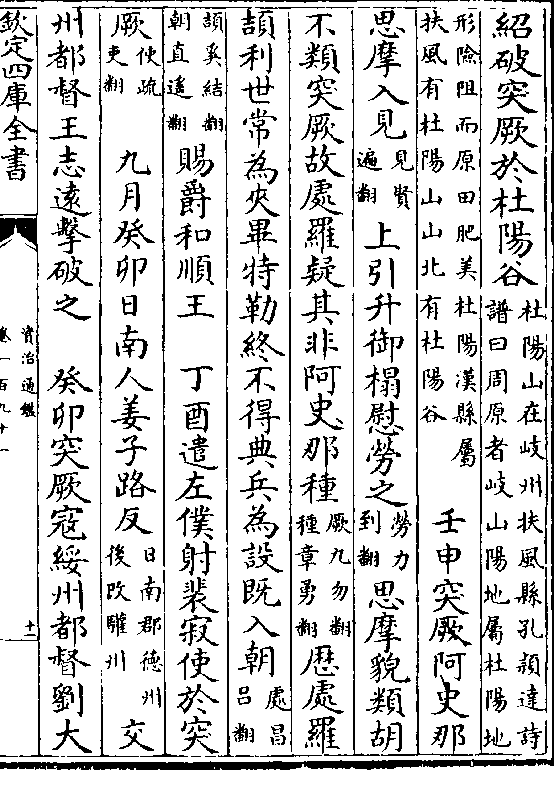 紹破突厥於杜陽谷杜陽山在岐州扶風縣孔頴達詩譜曰周原者岐山陽地屬杜陽地
形險阻而原田肥美杜陽漢縣屬扶風有杜陽山山北有杜陽谷 壬申突厥阿史那
思摩入見見賢遍翻上引升御榻慰勞之勞力到翻思摩貌類胡
不類突厥故處羅疑其非阿史那種厥九勿翻種章勇翻歴處羅
頡利世常為夾畢特勒終不得典兵為設既入朝處昌吕翻
頡奚結翻朝直遥翻賜爵和順王 丁酉遣左僕射裴寂使於突
厥使疏吏翻 九月癸卯日南人姜子路反日南郡德州後改驩州交
州都督王志遠擊破之 癸卯突厥寇綏州都督劉大
欽定四庫全書
資治通鑑
卷一百九十一
十一